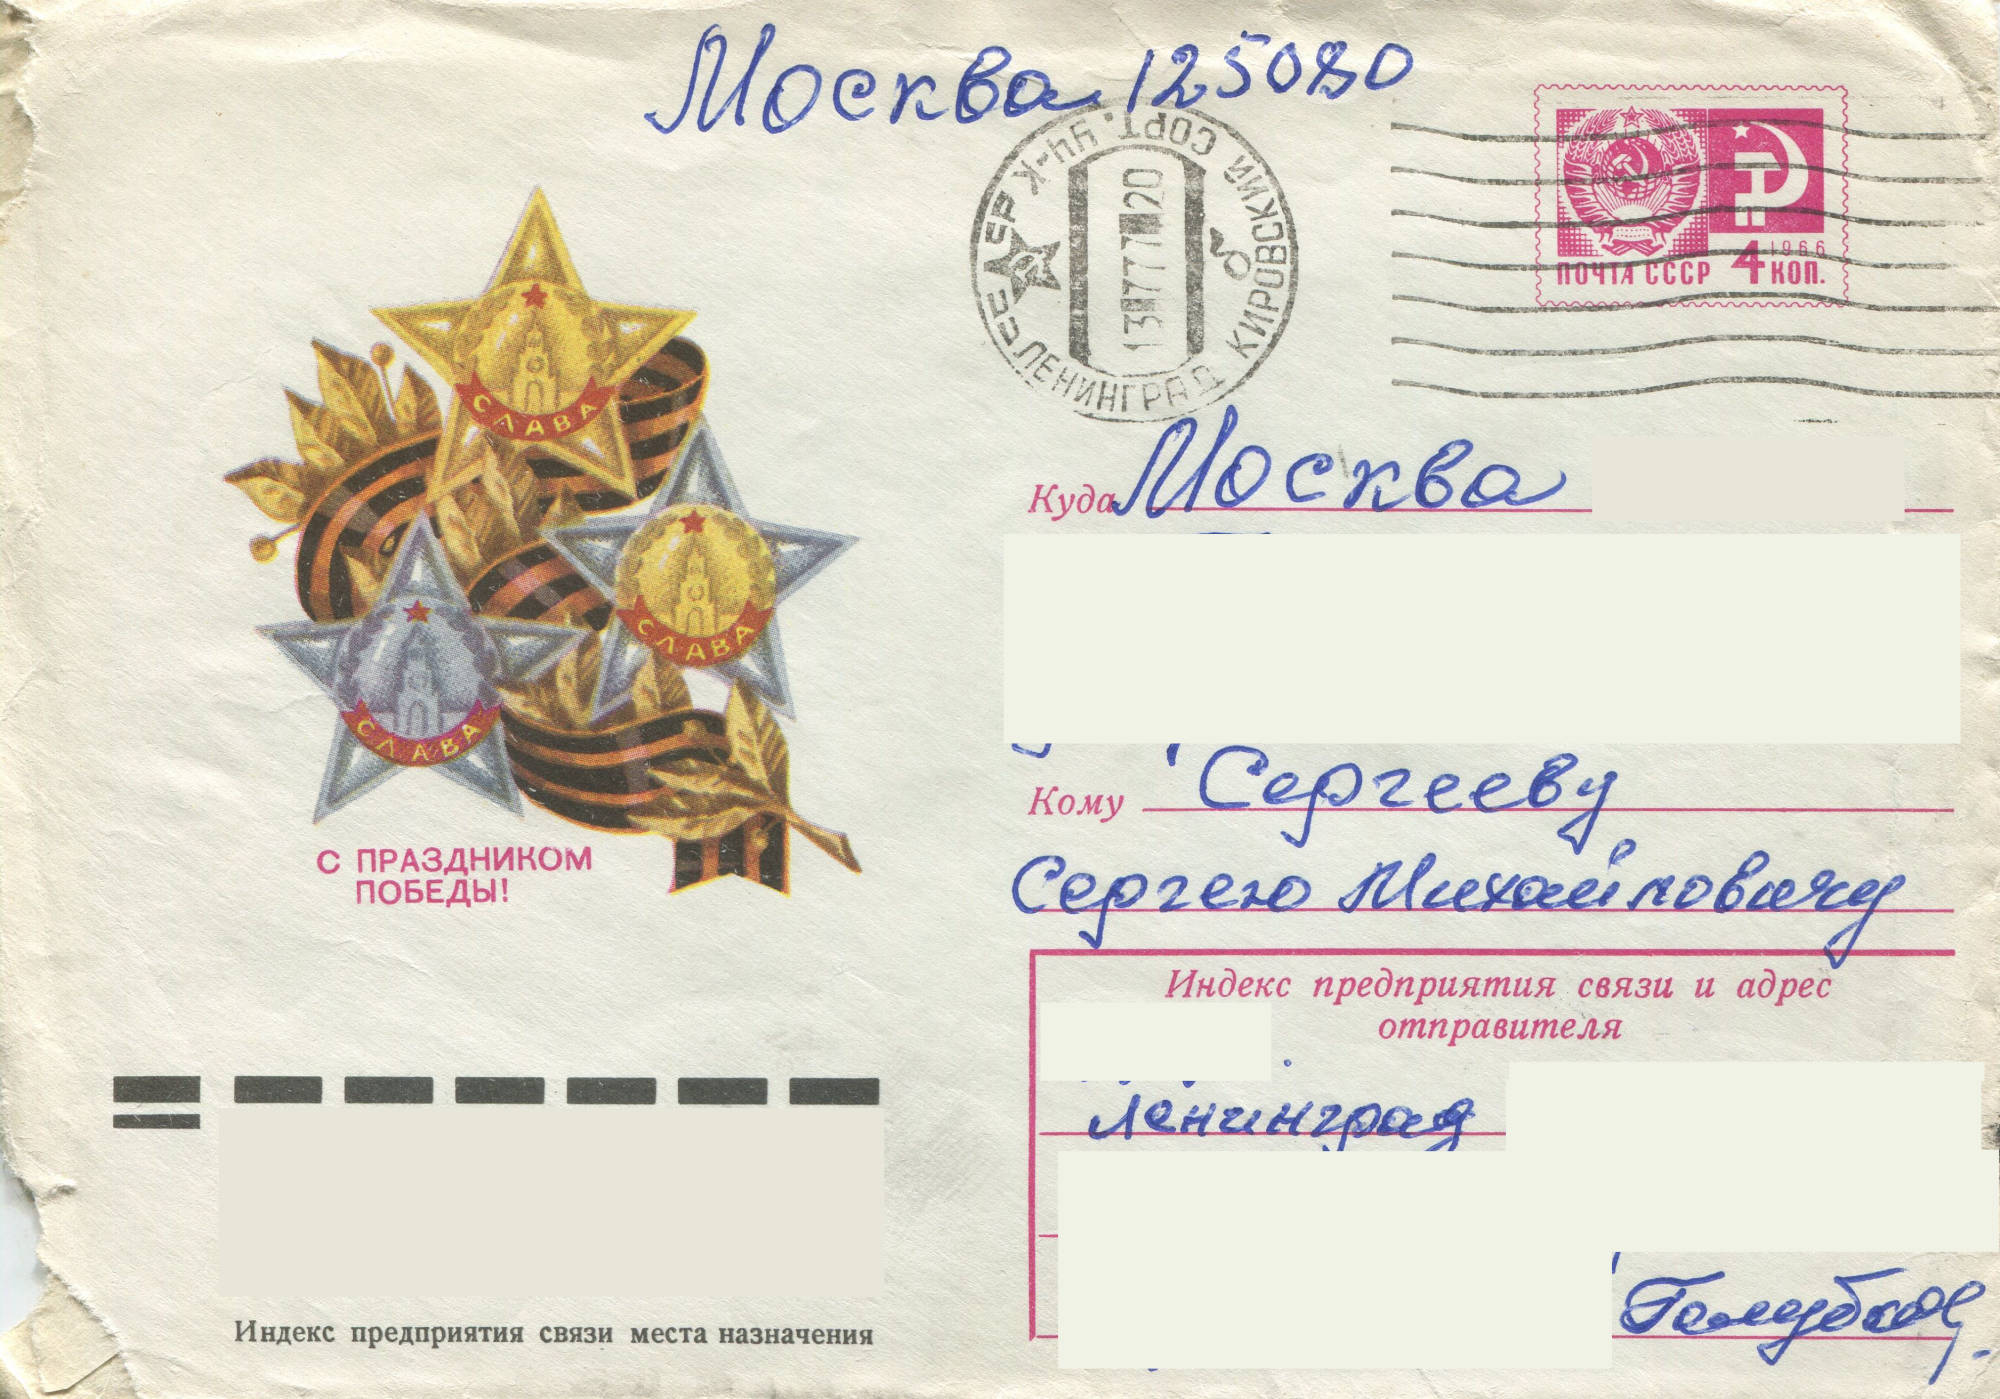 Москва 125080
СОРТ. УЧ-К
ЛЕНИНГРАД КИРОВСКИЙ
13 777 20
1966
ПОЧТА СССР 4 КОП.
СЛАВА
СЛАВА
СЛАВА
С ПРАЗДНИКОМ
ПОБЕДЫ!
Куда Москва
Кому Сергееву
Сергею Михайловичу
Индекс предприятия связи и адрес
отправителя
Ленинград
Индекс предприятия связи места назначения